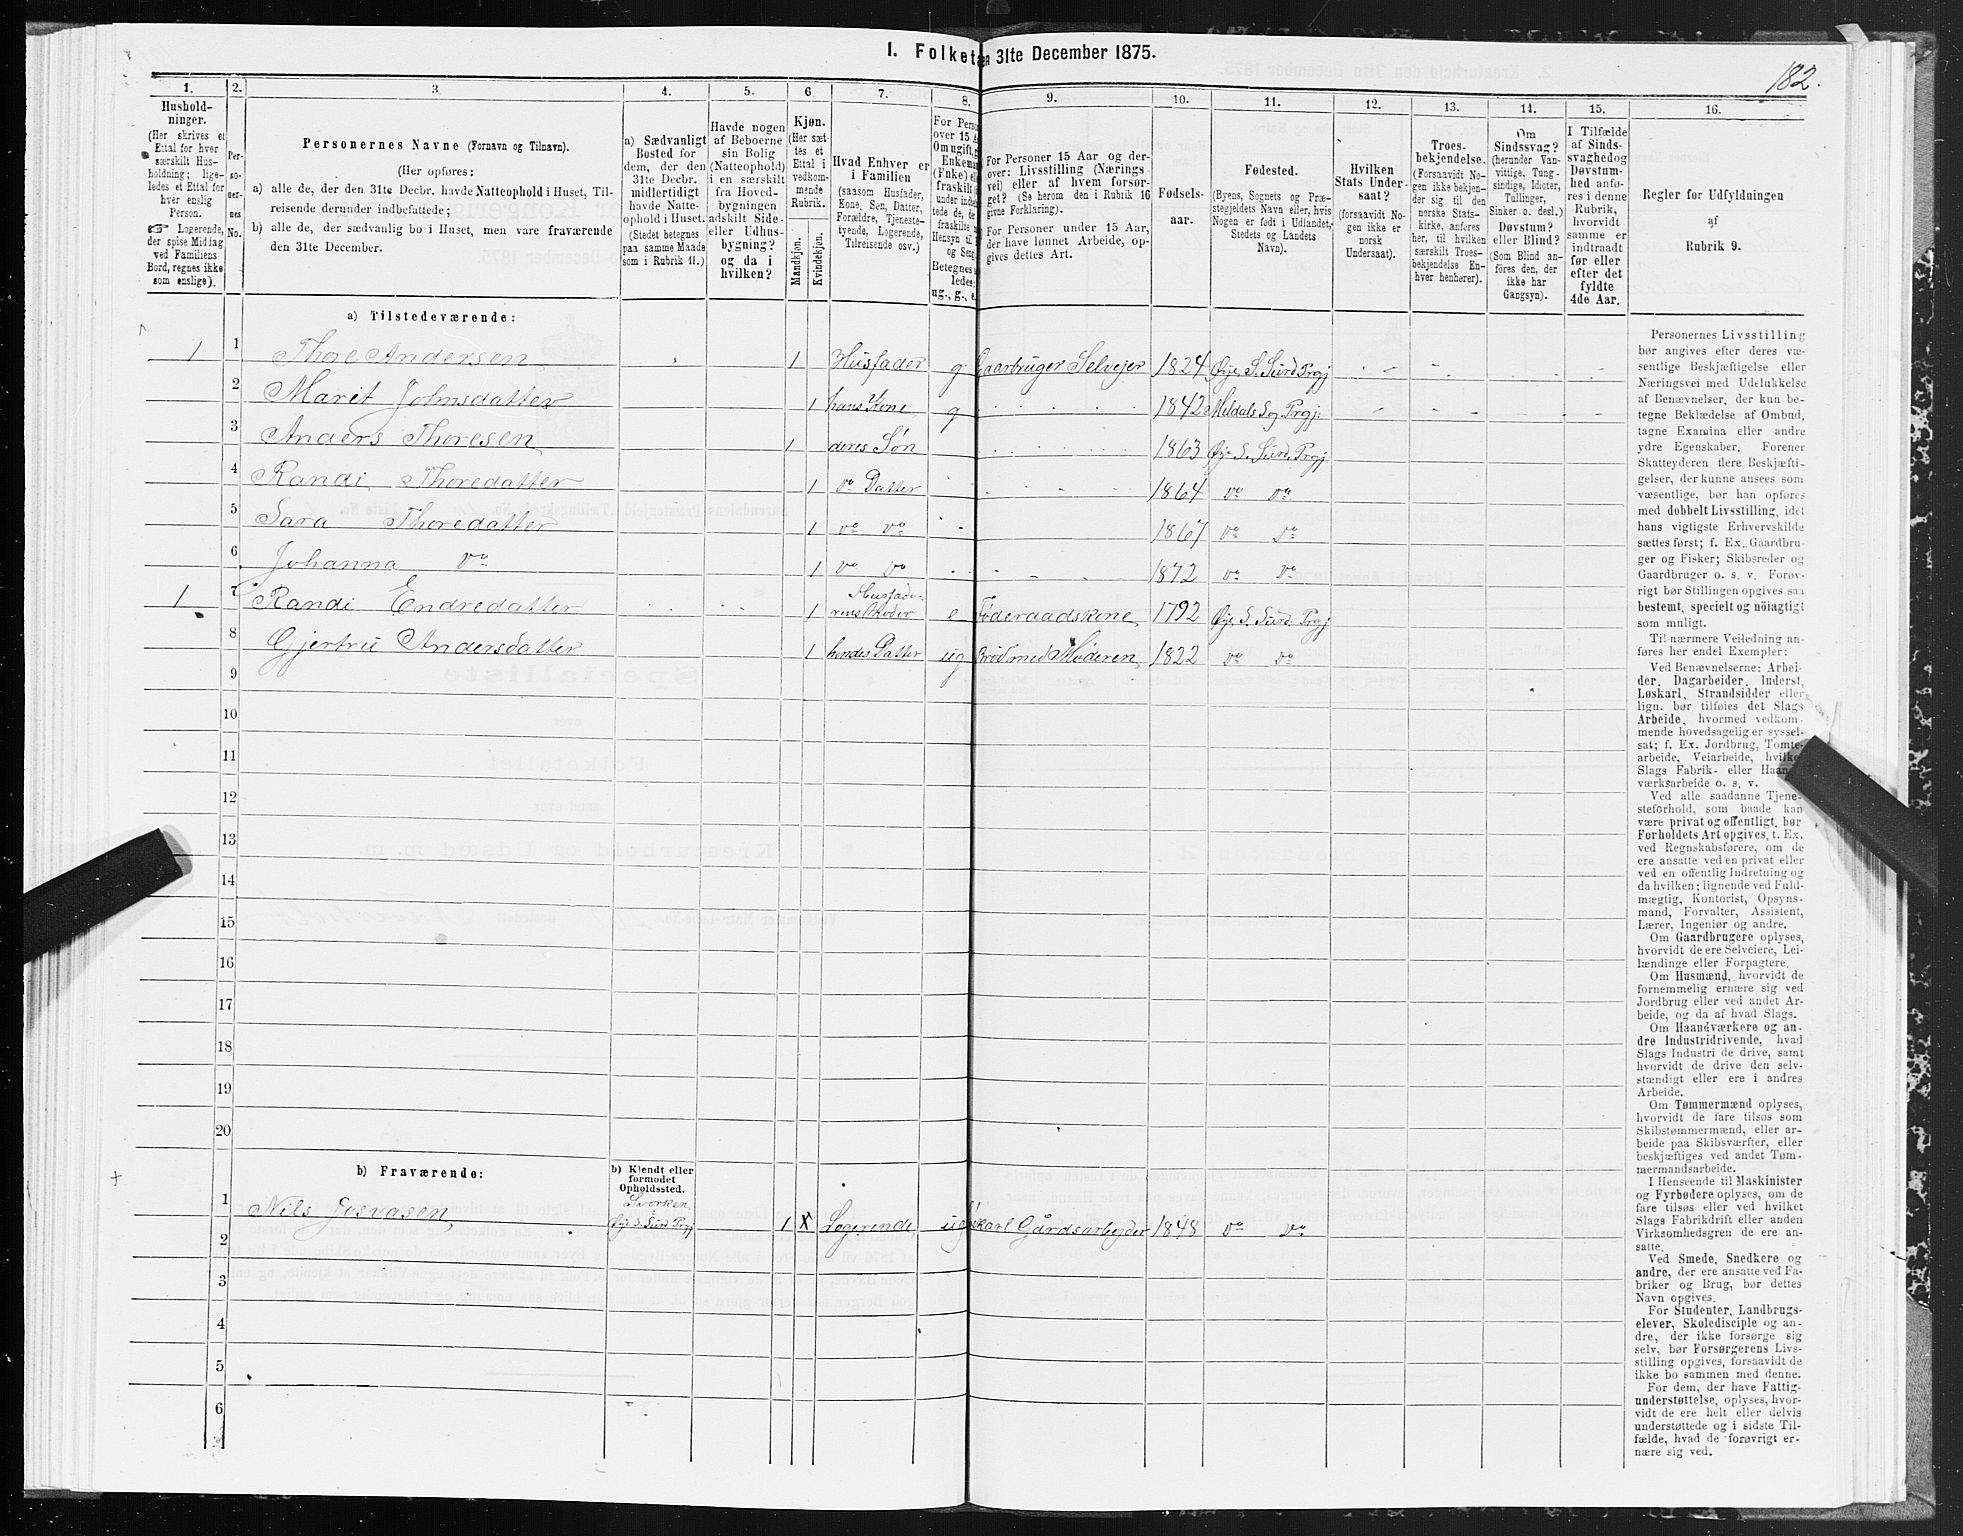 I. Folketal den 31te December 1875.
182.
1. 2. 3. 4. 5. 6. 7. 8. 9. 10. 11. 12. 13. 14. 15. 16.
Hushold-
ninger.
(Her skrives et
Ettal for hver
særskilt Hus-
holdning; lige-
ledes et Ettal for
hver enslig
Person.
☞ Logerende,
der spise Middag
ved Familiens
Bord, regnes ikke
som enslige).
Per-
so-
ner-
nes
No.
Personernes Navne (Fornavn og Tilnavn).
(Her opføres:
a) alle de, der den 31te Decbr. havde Natteophold i Huset, Til-
reisende derunder indbefattede;
b) alle de, der sædvanlig bo i Huset, men vare fraværende
den 31te December.
a) Sædvanligt
Bosted for
dem, der den
31te Decbr.
midlertidigt
havde Natte-
ophold i Huset.
(Stedet betegnes
paa samme Maade
som i Rubrik 11.)
Havde nogen
af Beboerne
sin Bolig
(Natteophold)
i en særskilt
fra Hoved-
bygningen
adskilt Side-
eller Udhus-
bygning?
og da i
hvilken?
Kjøn.
(Her sæt-
tes et
Ettal i
vedkom-
mende
Rubrik.
Mandkjøn.
Kvindekjøn.
Hvad Enhver er
i Familien
(saasom Husfader,
Kone, Søn, Datter,
Forældre, Tjeneste-
tyende, Logerende,
Tilreisende osv.)
For Perso
over 15 A
Om ugift,
Enkeman
(Enke) el
fraskilt
under ind
tede de,
fraskilte
Hensyn t
og Seng
Betegnes
ledes:
ug., g., e.
For Personer 15 Aar og der-
over: Livsstilling (Nærings
vei) eller af hvem forsør-
get? (Se herom den i Rubrik 16
givne Forklaring).
For Personer under 15 Aar,
der have lønnet Arbeide, op-
gives dettes Art.
Fødsels-
aar.
Fødested.
(Byens, Sognets og Præ-
stegjeldets Navn eller, hvis
Nogen er født i Udlandet,
Stedets og Landets
Navn).
Hvilken
Stats Under-
saat?
(forsaavidt No-
gen ikke er
norsk
Undersaat).
Troes-
bekjendelse.
(Forsaavidt No-
gen ikke bekjen-
der sig til den
norske Stats-
kirke, anføres
her, til hvilken
særskilt Troes-
bekjendelse En-
hver henhører).
Om
Sindssvag?
(herunder Van-
vittige, Tung-
sindige, Idioter,
Tullinger,
Sinker o. desl.)
Døvstum?
eller Blind?
(Som Blind an-
føres den, der
ikke har
Gangsyn).
I Tilfælde
af Sinds-
svaghed og
Døvstum-
hed anfø-
res i denne
Rubrik,
hvorvidt
samme er
indtraadt
før eller
efter det
fyldte
4de Aar.
Regler for Udfyldningen
af
Rubrik 9.
a) Tilstedeværende:
1 1 Thore Andersen 1 Husfader g Gaarbruger Selvejer 1824 Øye S. Surd. Prgj
2 Marit Johnsdatter 1 hans Kone g 1842 Meldals Sog. Prgj.
3 Anders Thoresen 1 deres Søn 1863 Øye S. Surd. Prgj.
4 Randi Thoredatter 1 do Datter 1864 do do
5 Sara Thoredatter 1 do do 1867 do do
6 Johanna do 1 do do 1872 do do
1 7 Randi Endredatter 1 Husfade-
rens Moder e Føderaadskone 1792 Øye S. Surd. Prgj
8 Gjertru Andersdatter 1 hendes Datter ug Brød med Moderen 1822 do do
9
10
11
12
13
14
15
16
17
18
19
20
b) Fraværende:
b) Kjendt eller
formodet
Opholdssted.
1 Nils Josvasen Storken
Øye S. Surd Prgj 1 X Logerende ug karl Gårdsarbejder 1848 do do
2
3
4
5
6
Personernes Livsstilling
bør angives efter deres væ-
sentlige Beskjæftigelse eller
Næringsvei med Udelukkelse
af Benævnelser, der kun be-
tegne Beklædelse af Ombud,
tagne Examina eller andre
ydre Egenskaber. Forener
Skatteyderen flere Beskjæfti-
gelser, der kunne ansees som
væsentlige, bør han opføres
med dobbelt Livsstilling, idet
hans vigtigste Erhvervskilde
sættes først; f. Ex. Gaardbru-
ger og Fisker; Skibsreder og
Gaardbruger o. s. v. Forøv-
rigt bør Stillingen opgives saa
bestemt, specielt og nöiagtigt
som muligt.
Til nærmere Veiledning an-
føres her endel Exempler:
Ved Benævnelserne: Arbei-
der, Dagarbeider, Inderst,
Løskarl, Strandsidder eller
lign. bør tilføies det Slags
Arbeide, hvormed vedkom-
mende hovedsagelig er syssel-
sat; f. Ex. Jordbrug, Tomte-
arbeide, Veiarbeide, hvilke
Slags Fabrik- eller Haand-
værksarbeide o. s. v.
Ved alle saadanne Tjene-
steforhold, som baade kan
være privat og offentligt, bør
Forholdets Art opgives, t. Ex.
ved Regnskabsførere, om de
ere ansatte ved en privat eller
ved en offentlig Indretning og
da hvilken; lignende ved Fuld-
mægtig, Kontorist, Opsyns-
mand, Forvalter, Assistent,
Lærer, Ingeniør og andre.
Om Gaardbrugere oplyses,
hvorvidt de ere Selveiere, Lei-
lændinge eller Forpagtere.
Om Husmænd, hvorvidt de
fornemmelig ernære sig ved
Jordbrug eller ved andet Ar-
beide, og da af hvad Slags.
Om Haandværkere og an-
dre Industridrivende, hvad
Slags Industri de drive, samt
hvorvidt de drive den selv-
stændigt eller ere i andres
Arbeide.
Om Tømmermænd oplyses,
hvorvidt de fare tilsøs som
Skibstømmermænd, eller ar-
beide paa Skibsværfter, eller
beskjæftiges ved andet Tøm-
mermandsarbeide.
I Henseende til Maskinister
og Fyrbødere oplyses, om de
fare tilsøs eller ved hvilket
Slags Fabrikdrift eller anden
Virksomhedsgren de ere an-
satte.
Ved Smede, Snedkere og
andre, der ere ansatte ved Fa-
briker og Brug, bør dettes
Navn opgives.
For Studenter, Landbrugs-
elever, Skoledisciple og an-
dre, der ikke forsørge sig
selv, bør Forsørgerens Livs-
stilling opgives, forsaavidt de
ikke bo sammen med denne.
For dem, der have Fattig-
understøttelse, oplyses, hvor-
vidt de ere helt eller delvis
understøttede og i sidste Til-
fælde, hvad de forøvrigt er-
nære sig ved.